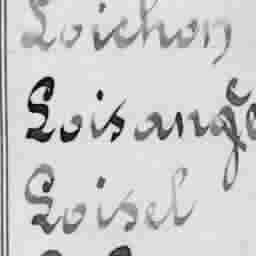 Loichon
Loisange
Loisel